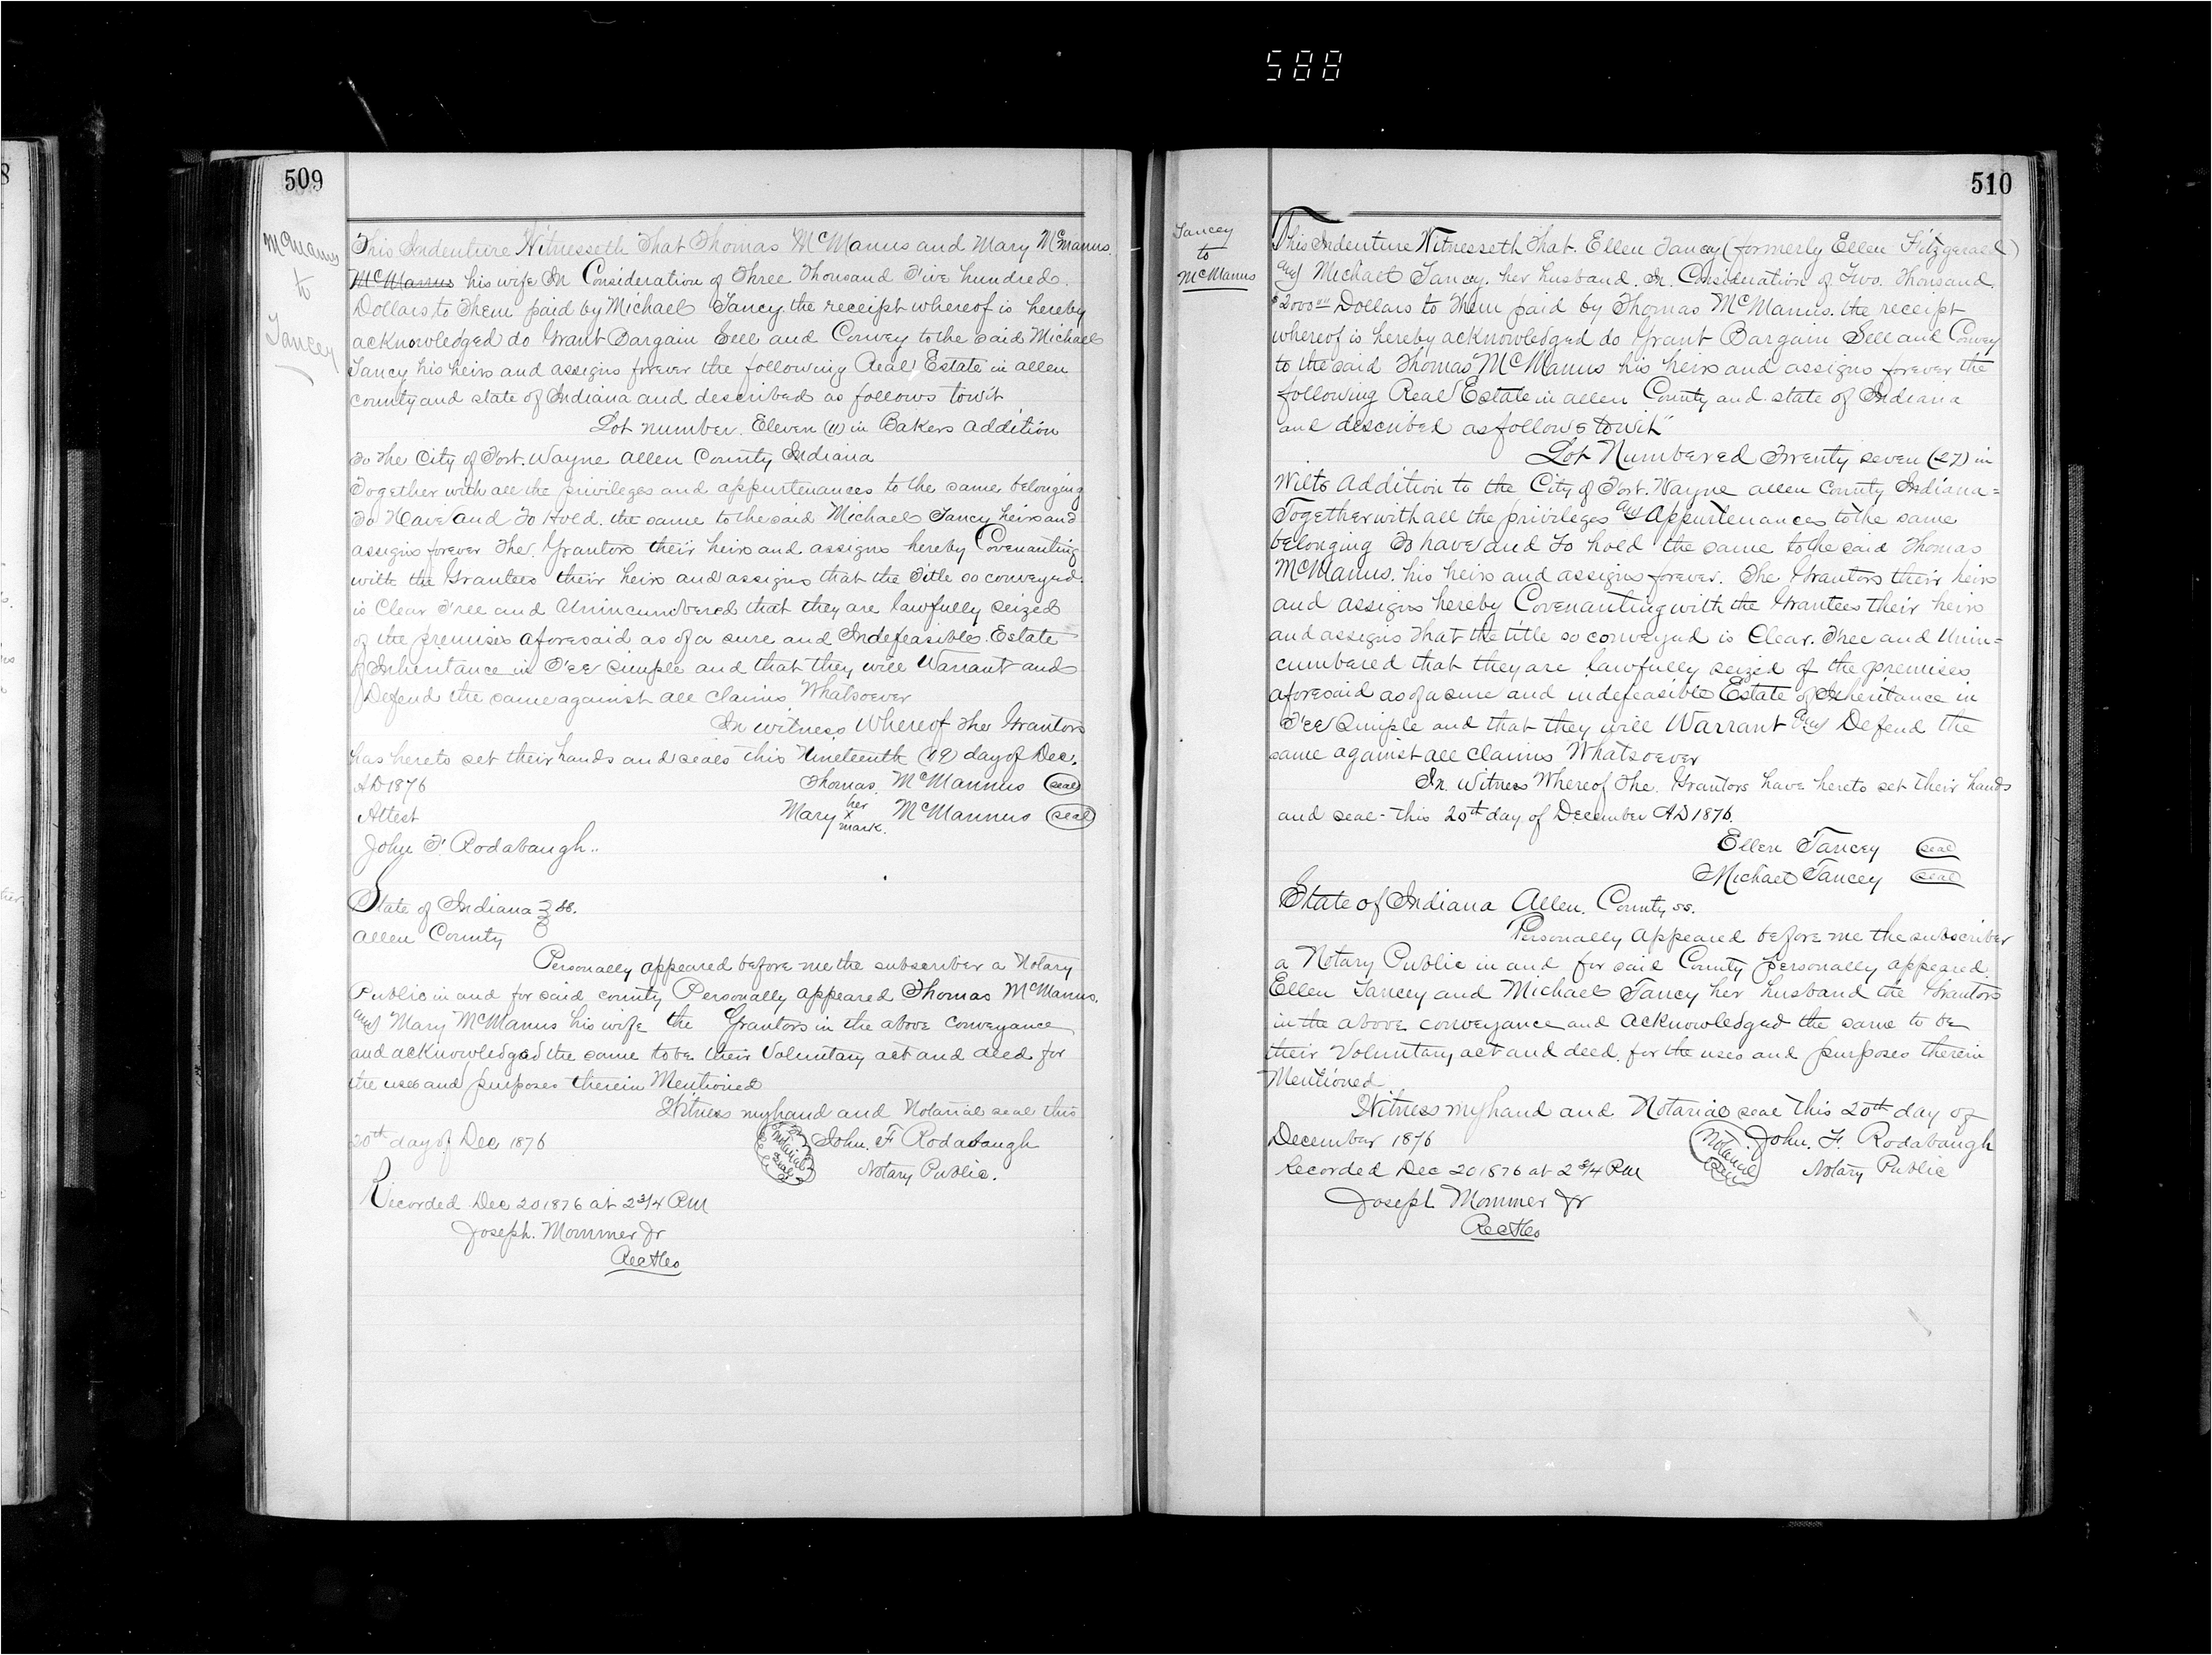 588
509
McManus
to
Tancey
This Indenture Witnesseth That Thomas McManus and Mary McManus.
McManus his wife In Consideration of Three Thousand Five hundred
Dollars to Them paid by Michael Tancy the receipt whereof is hereby
acknowledged do Grant Bargain Sell and Convey to the said Michael
Tancy his heirs and assigns forever the following Real Estate in allen
county and state of Indiana and described as follows towit
Lot number. Eleven (11) in Bakers addition
To the City of Fort. Wayne allen County Indiana
Together with all the privileges and appurtenances to the same belonging
To Have and To Hold. the same to the said Michael Tancy heirs and
assigns forever The. Grantors their heirs and assigns hereby Covenanting
with the Grantees their heirs and assigns that the Title so conveyed.
is Clear Free and Unincumbered that they are lawfully seized
of the premises aforesaid as of a sure and Indefeasible. Estate
of Inheritance in Fee Simple and that they will Warrant and
Defend the same against all claims Whatsoever
In witness Whereof The Grantors
has hereto set their hands and seals this Nineteenth (19) day of Dec.
AD 1876 Thomas. McMannus (seal)
Attest Mary her x mark. McMannus (seal)
John F. Rodabaugh..
State of Indiana } ss.
allen County
Personally appeared before me the subscriber a Notary
Public in and for said county Personally appeared Thomas McManus.
and Mary McManus his wife the Grantors in the above conveyance
and acknowledged the same to be their Voluntary act and deed for
the uses and purposes therein Mentioned
Witness my hand and Notarial seal this
20th day of Dec 1876 Notarial Seal John. F Rodabaugh
Notary Public.
Recorded Dec 20 1876 at 2 3/4 PM
Joseph. Mommer Jr
Rec
510
Tancey
to
McManus
This Indenture Witnesseth That. Ellen Tancey (formerly Ellen Fitzgerald)
and Michael Tancey. her husband. In. Consideration of Two. Thousand.
$2000 Dollars to Them paid by Thomas McManus. the receipt
whereof is hereby acknowledged do Grant Bargain Sell and Convey
to the said Thomas McManus his heirs and assigns forever the
following Real Estate in allen County and state of Indiana
and described as follows towit"
Lot Numbered Twenty seven (27) in
Wilts Addition to the City of Fort. Wayne allen County Indiana=
Together with all the privileges and Appurtenances to the same
belonging To have and To hold the same to the said Thomas
McManus. his heirs and assigns forever. The Grantors their heirs
and assigns hereby Covenanting with the Grantees their heirs
and assigns That the title so conveyed is Clear. Free and Unin=
cumbered that they are lawfully seized of the premises
aforesaid as of a sure and indefeasible Estate of Inheritance in
Fee Simple and that they will Warrant and Defend the
same against all claims Whatsoever
In. Witness Whereof The. Grantors have hereto set their hands
and seal - this 20th day of December AD 1876.
Ellen Tancey (seal)
Michael Tancey (seal)
State of Indiana Allen. County ss.
Personally Appeared before me the subscriber
a Notary Public in and for said County personally appeared.
Ellen Tancey and Michael Tancy her husband the Grantors
in the above conveyance and acknowledged the same to be
their Voluntary act and deed. for the uses and purposes therein
Mentioned
Witness my hand and Notarial seal this 20th day of
December 1876 Notarial Seal John. F. Rodabaugh
Notary Public
Recorded Dec 20 1876 at 2 3/4 PM
Joseph Mommer Jr
Rec